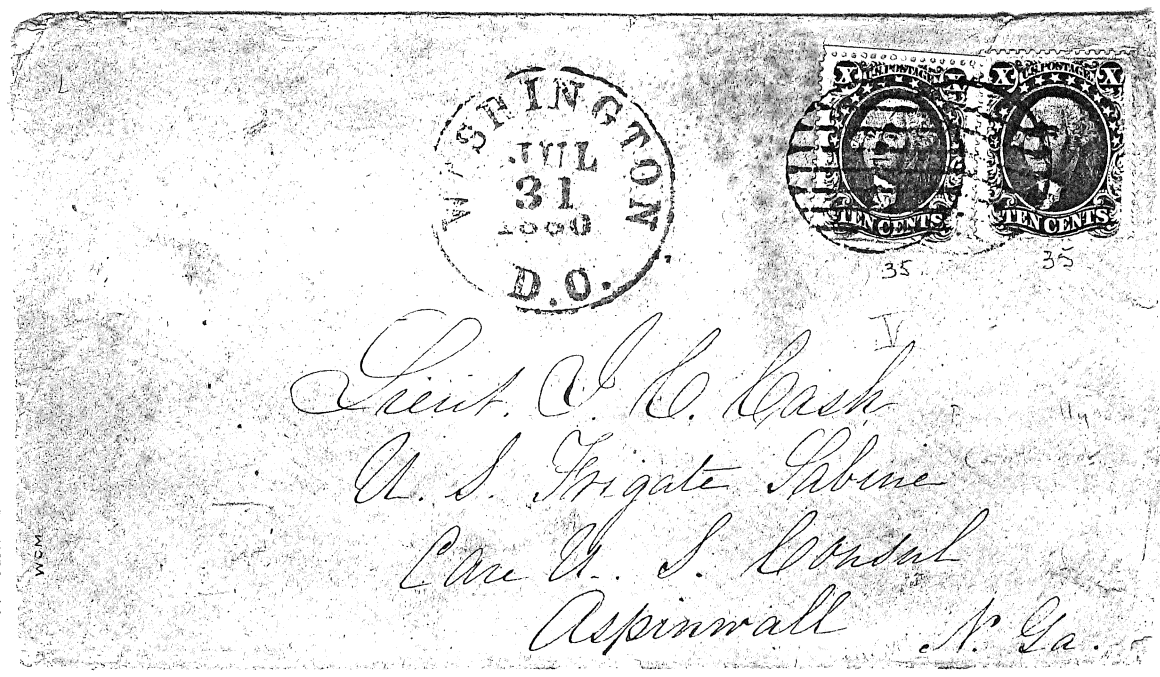 WASHINGTON
JUL
31
1860
D.C.
X U.S. POSTAGE X
TEN CENTS
X U.S. POSTAGE X
TEN CENTS
35
35
V
Lieut. J. C. Cash
U. S. Frigate Sabine
Care U. S. Consul
Aspinwall N. Ga.
WCM